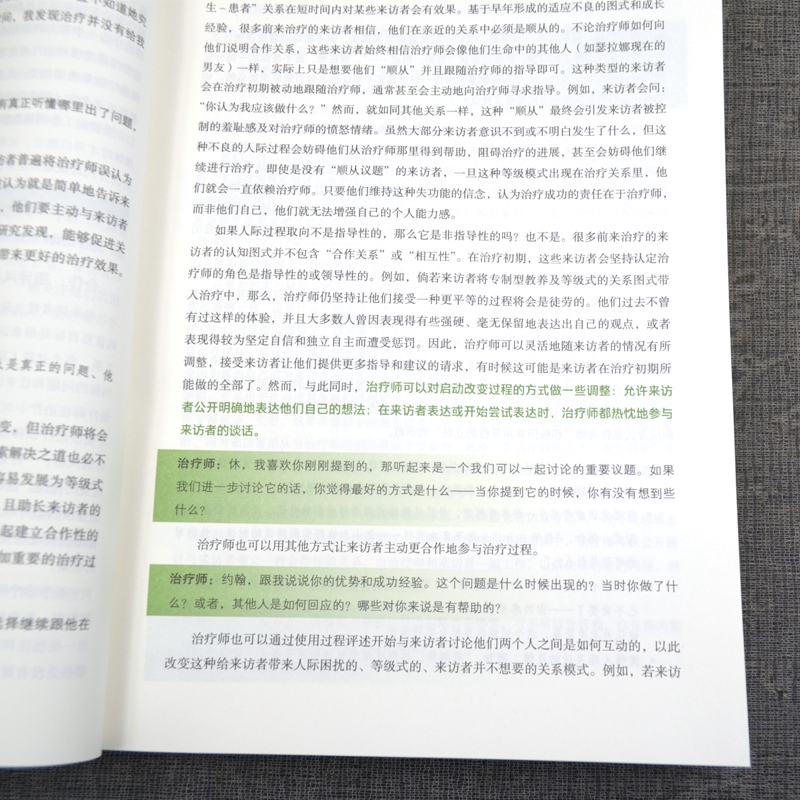 不知道她究
间，我发现治疗并没有给我
有真正听懂哪里出了问题，
者普遍将治疗师误认为
认为就是简单地告诉来
，他们要主动与来访者
研究发现，能够促进关
带来更好的治疗效果。
是真正的问题、他
变。但治疗师将会
索解决之道也必不
容易发展为等级式
且助长来访者的
起建立合作性的
加重要的治疗过
选择继续跟他在
生–患者”关系在短时间内对某些来访者会有效果。基于早年形成的适应不良的图式和成长
经验，很多前来治疗的来访者相信，他们在亲近的关系中必须是顺从的。不论治疗师如何向
他们说明合作关系，这些来访者始终相信治疗师会像他们生命中的其他人（如瑟拉娜现在的
男友）一样，实际上只是想要他们“顺从”并且跟随治疗师的指导即可。这种类型的来访者
会在治疗初期被动地跟随治疗师，通常甚至会主动地向治疗师寻求指导。例如，来访者会问：
“你认为我应该做什么？”然而，就如同其他关系一样，这种“顺从”最终会引发来访者被控
制的羞耻感及对治疗师的愤怒情绪。虽然大部分来访者意识不到或不明白发生了什么，但这
种不良的人际过程会妨碍他们从治疗师那里得到帮助，阻碍治疗的进展，甚至会妨碍他们继
续进行治疗。即使是没有“顺从议题”的来访者，一旦这种等级模式出现在治疗关系里，他
们就会一直依赖治疗师。只要他们维持这种失功能的信念，认为治疗成功的责任在于治疗师，
而非他们自己，他们就无法增强自己的个人能力感。
如果人际过程取向不是指导性的，那么它是非指导性的吗？也不是。很多前来治疗的来
访者的认知图式并不包含“合作关系”或“相互性”。在治疗初期，这些来访者会坚持认定治
疗师的角色是指导性的或领导性的。例如，倘若来访者将专制型教养及等级式的关系图式带
入治疗中，那么，治疗师仍坚持让他们接受一种更平等的过程将会是徒劳的。他们过去不曾
有过这样的体验，并且大多数人曾因表现得有些强硬、毫无保留地表达出自己的观点，或者
表现得较为坚定自信和独立自主而遭受惩罚。因此，治疗师可以灵活地随来访者的情况有所
调整，接受来访者让他们提供更多指导和建议的请求，有时候这可能是来访者在治疗初期所
能做的全部了。然而，与此同时，治疗师可以对启动改变过程的方式做一些调整：允许来访
者公开明确地表达他们自己的想法；在来访者表达或开始尝试表达时，治疗师都热忱地参与
来访者的谈话。
治疗师：休，我喜欢你刚刚提到的，那听起来是一个我们可以一起讨论的重要议题。如果
我们进一步讨论它的话，你觉得最好的方式是什么——当你提到它的时候，你有没有想到些
什么？
治疗师也可以用其他方式让来访者主动更合作地参与治疗过程。
治疗师：约翰，跟我说说你的优势和成功经验。这个问题是什么时候出现的？当时你做了什
么？或者，其他人是如何回应的？哪些对你来说是有帮助的？
治疗师也可以通过使用过程评述开始与来访者讨论他们两个人之间是如何互动的，以此
改变这种给来访者带来人际困扰的、等级式的、来访者并不想要的关系模式。例如，若来访